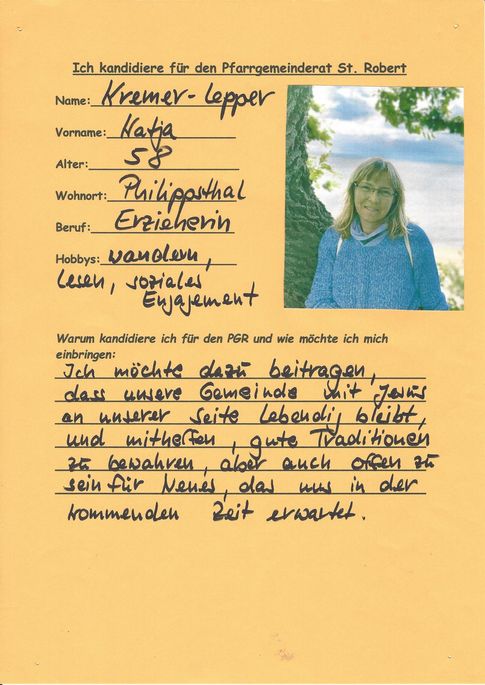 Ich kandidiere für den Pfarrgemeinderat St. Robert
Name: Kremer-Lepper
Vorname: Katja
Alter: 58
Wohnort: Philippsthal
Beruf: Erzieherin
Hobbys: wandern,
lesen, soziales
Engagement
Warum kandidiere ich für den PGR und wie möchte ich mich
einbringen:
Ich möchte dazu beitragen,
dass unsere Gemeinde mit Jesus
an unserer Seite lebendig bleibt,
und mithelfen, gute Traditionen
zu bewahren, aber auch offen zu
sein für Neues, das uns in der
kommenden Zeit erwartet.